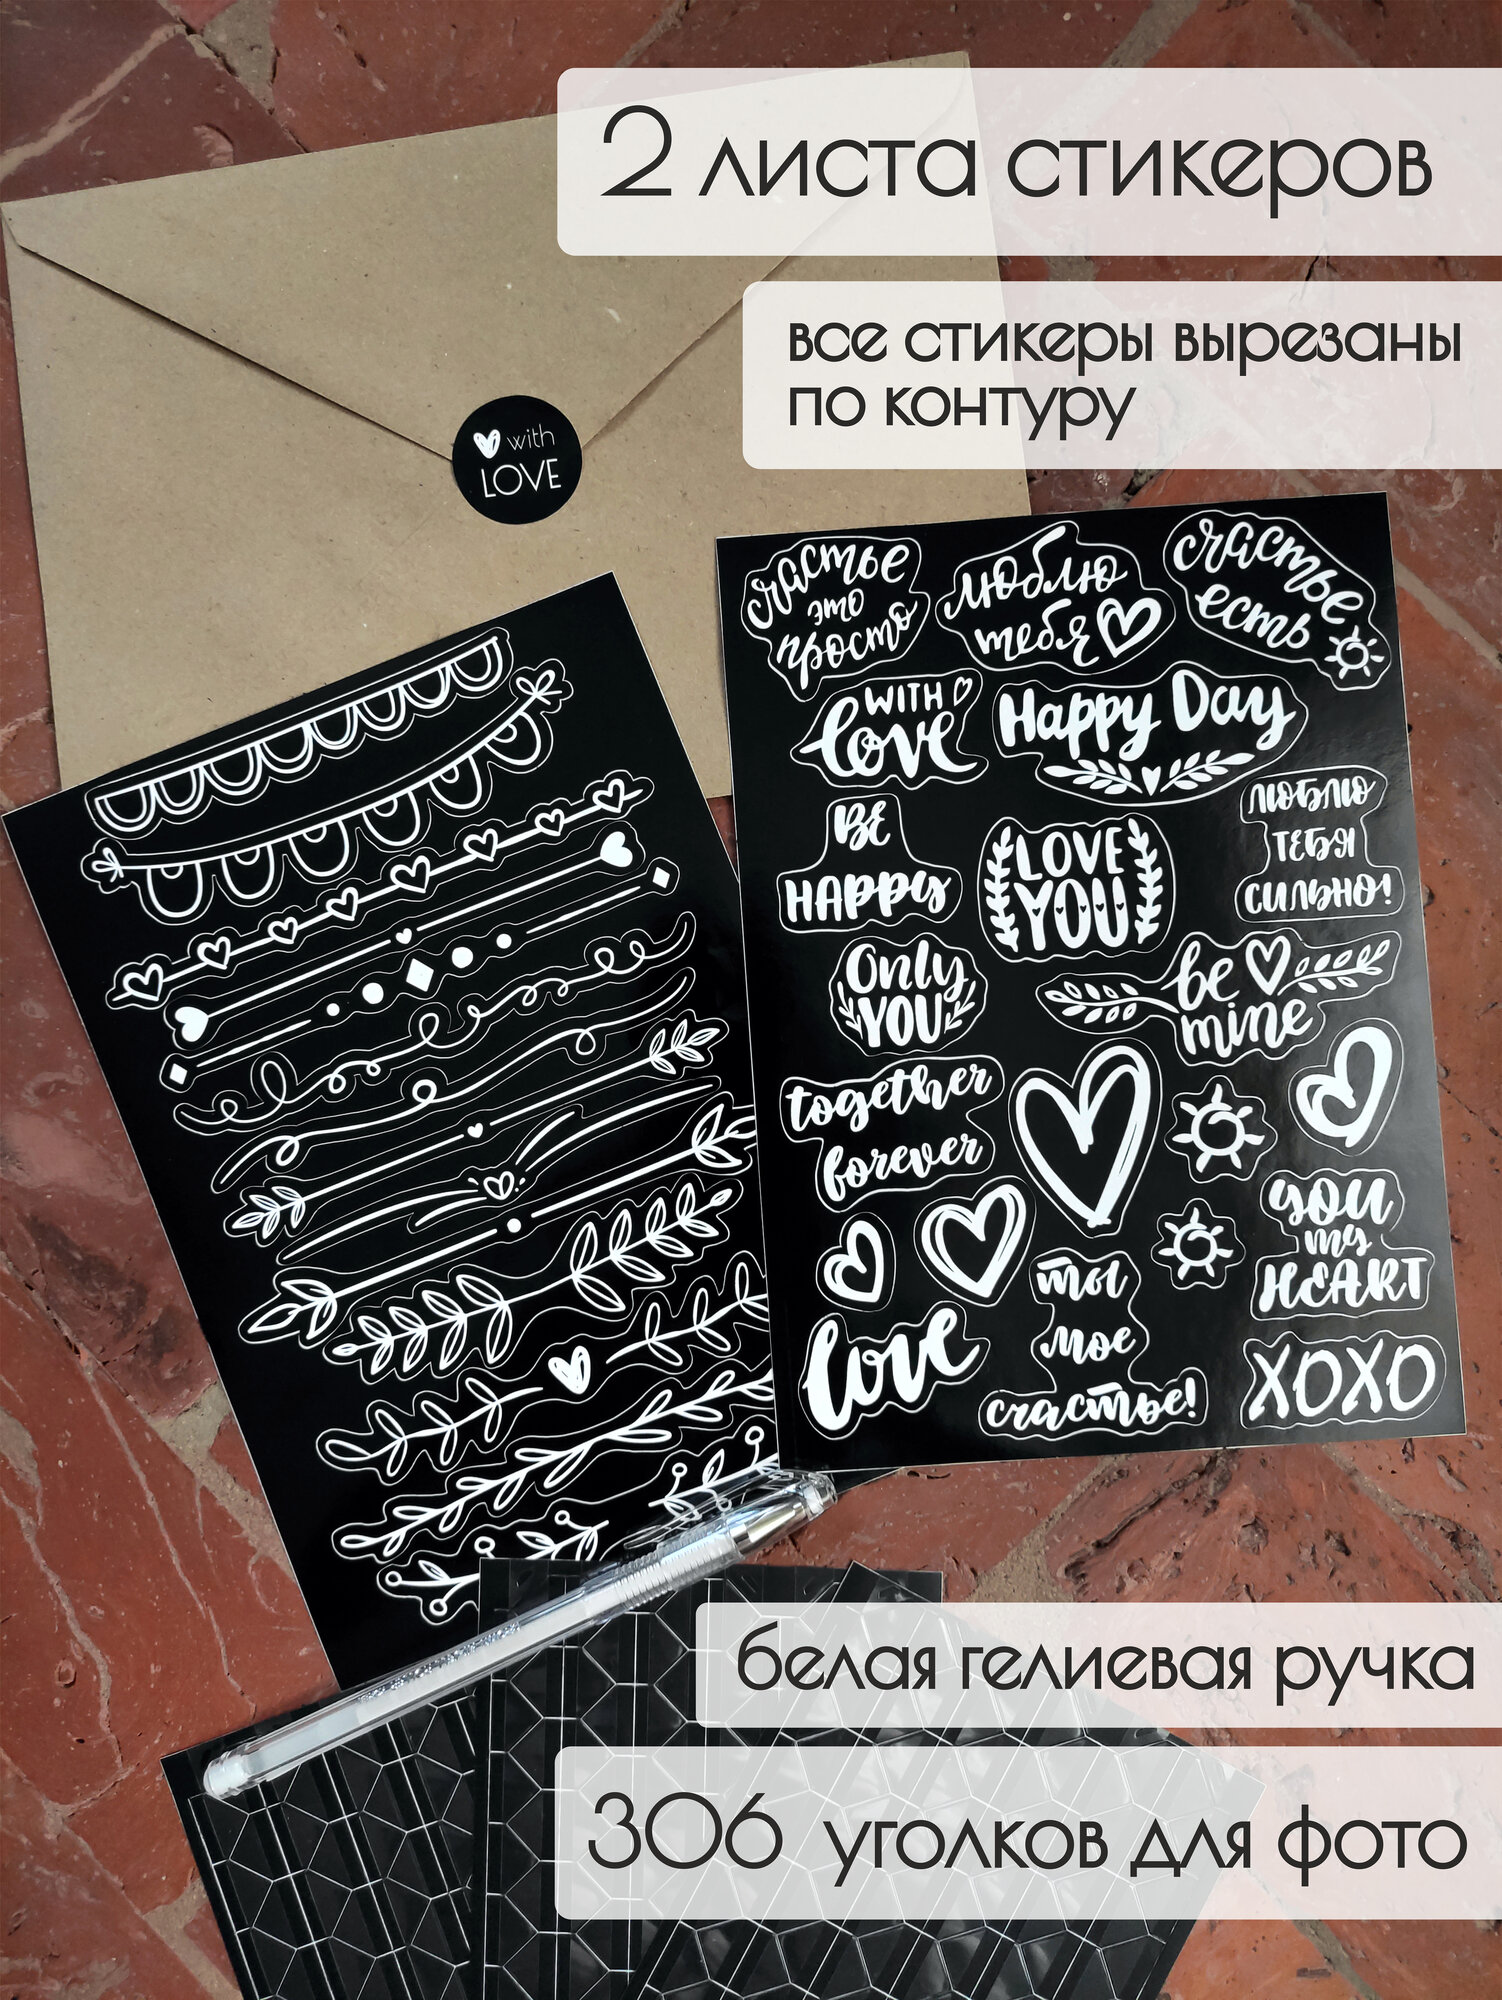 2 листа стикеров
все стикеры вырезаны
по контуру
with
LOVE
счастье
это
просто
люблю
тебя
счастье
есть
WITH
love
Happy Day
BE
HAPPY
LOVE
YOU
ЛЮБЛЮ
ТЕБЯ
СИЛЬНО!
Only
YOU
be
mine
together
forever
you
my
HEART
love
ты
мое
счастье!
XOXO
белая гелиевая ручка
306 уголков для фото